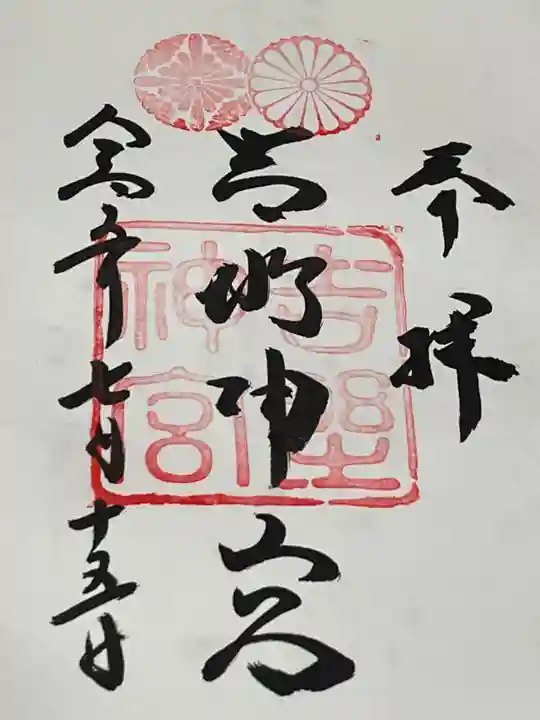 奉拝
吉野神宮
令和 年七月十五日
吉野
神宮